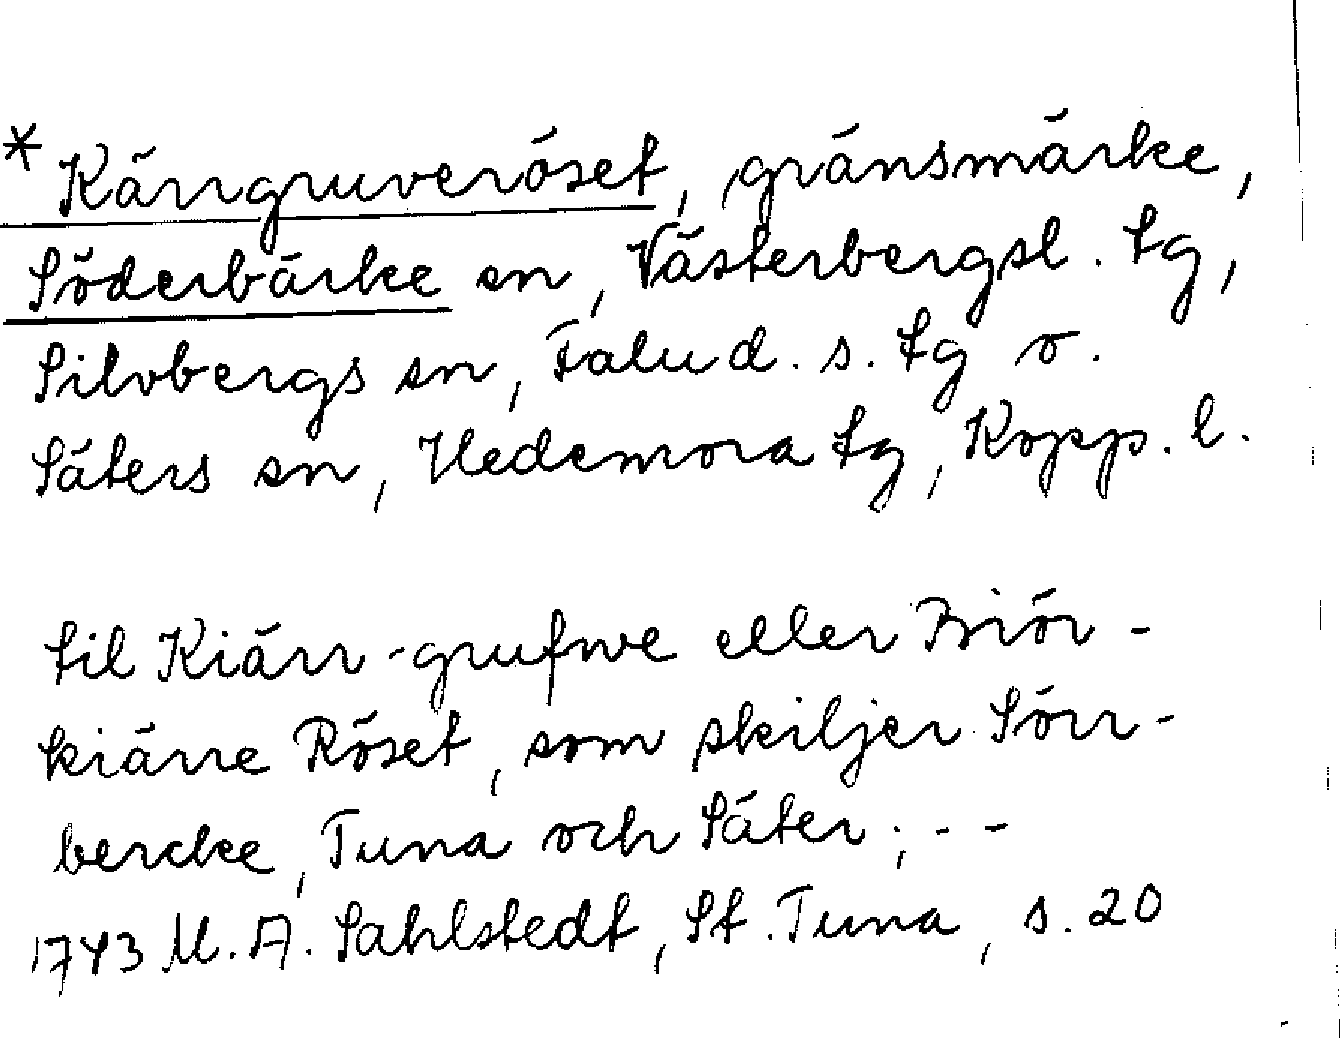 * Kärrgruveröset, gränsmärke,
Söderbärke sn, Västerbergsl. tg,
Silvbergs sn, Falu d. s. tg o.
Säters sn, Hedemora tg, Kopp. l.
til Kiärr-grufwe eller Briör-
kiärre Röset, som skiljer Sörr-
bercke, Tuna och Säter; - -
1743 M. A. Sahlstedt, St. Tuna, s. 20